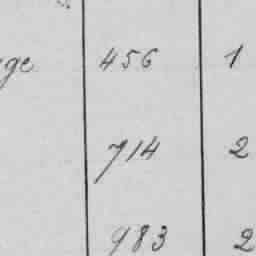 456 1
714 2
983 2